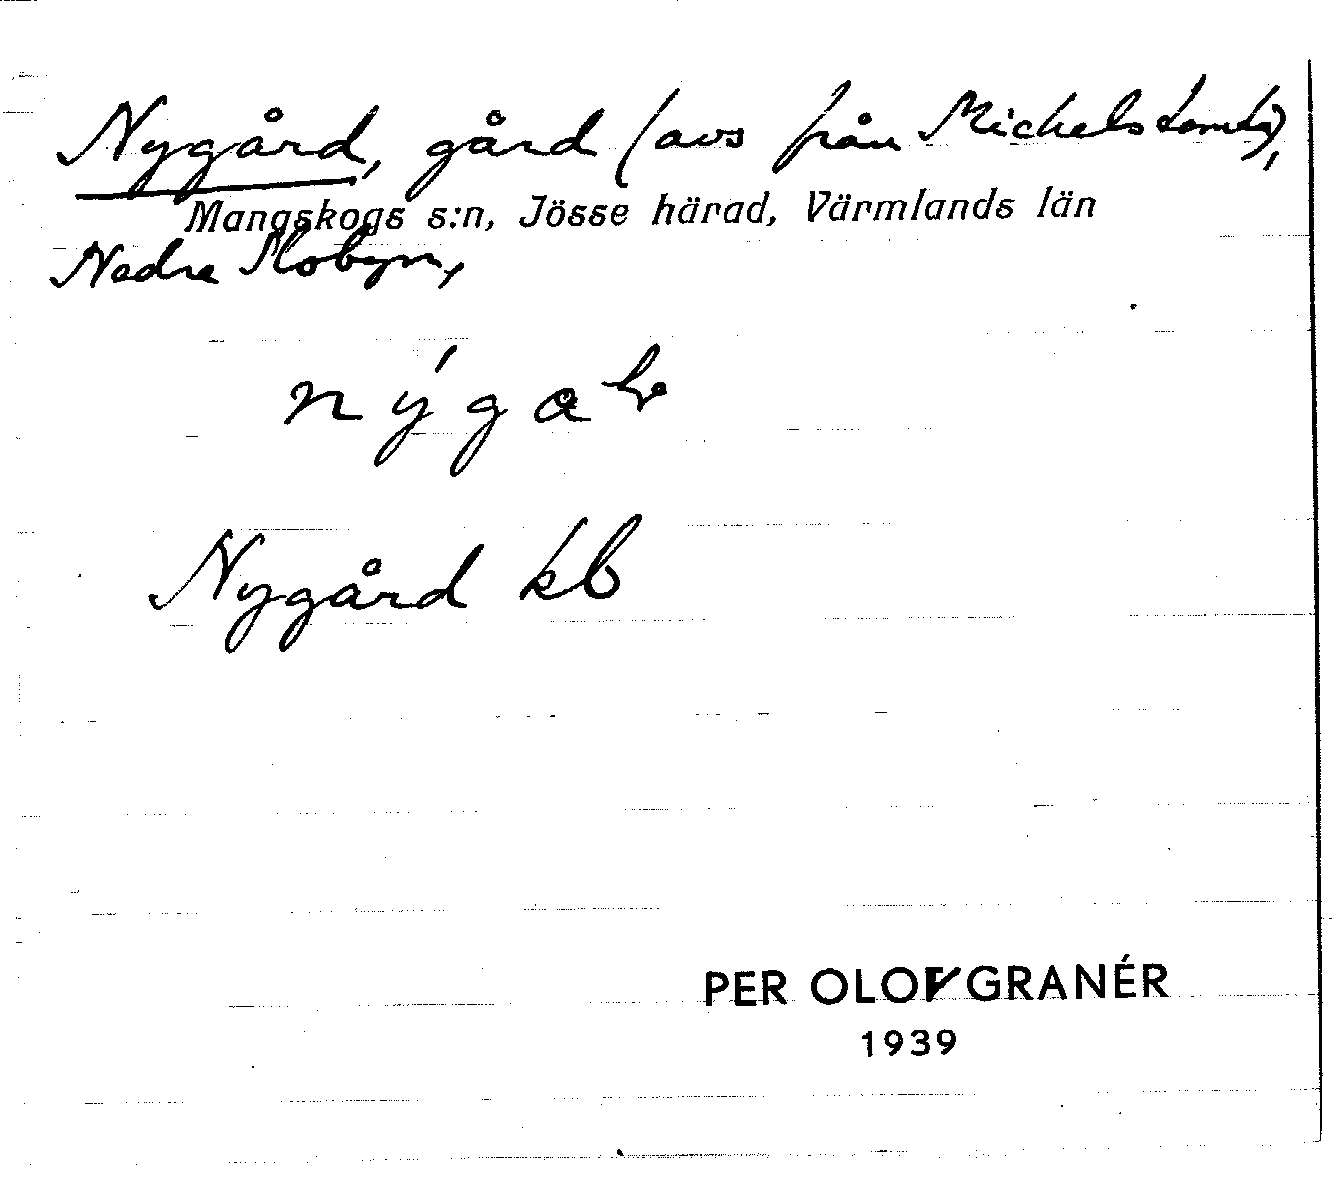 Nygård, gård (avs från Michelstomta),
Mangskogs s:n, Jösse härad, Värmlands län
Nedre Mobyn,
Nygård kb
PER OLOF GRANÉR
1939